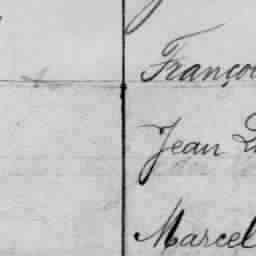 Franço
Jean
Marcel